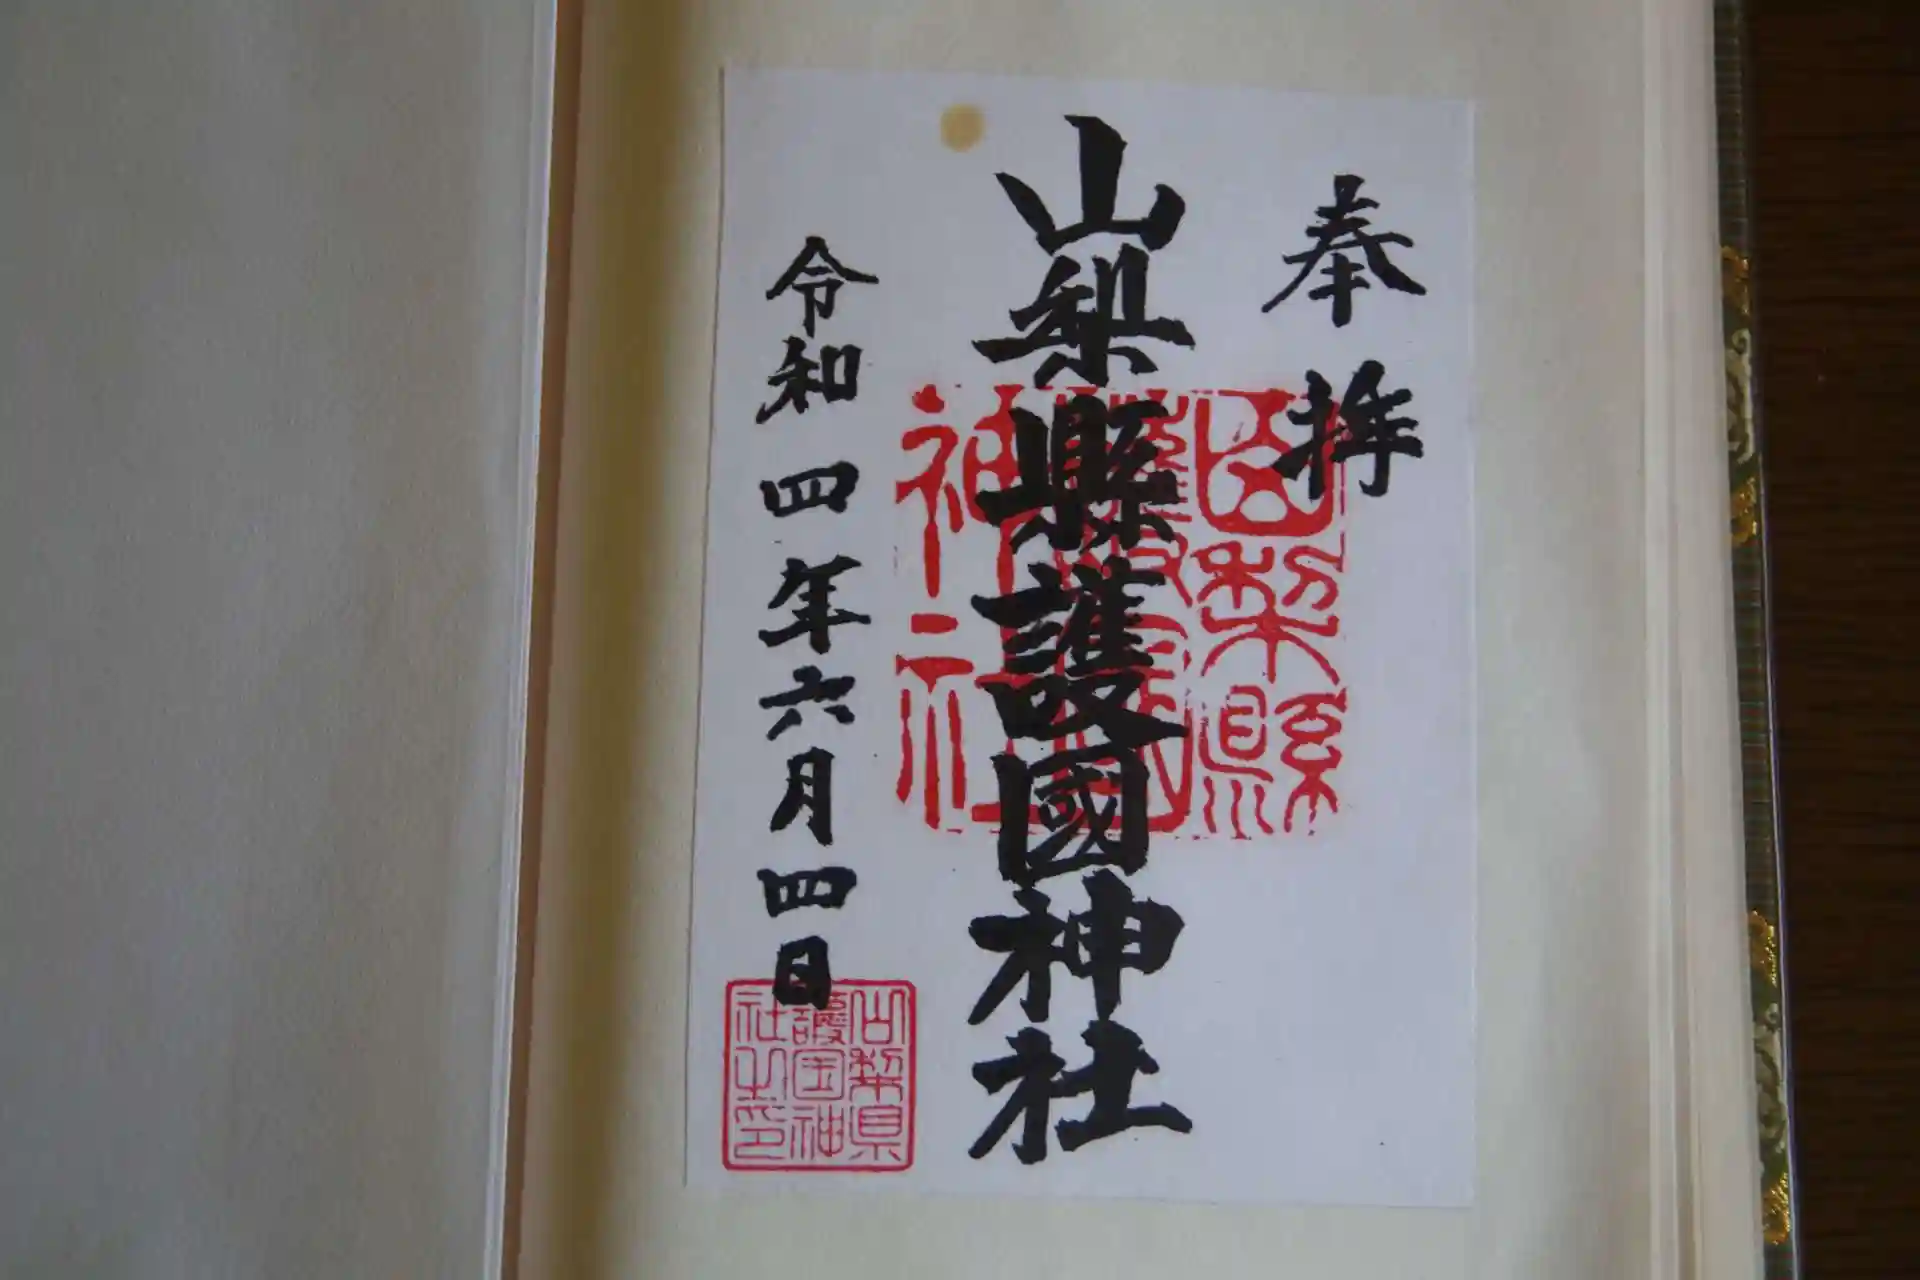 奉拝
山梨縣護國神社
令和四年六月四日
山梨縣
護國
神社
山梨県
護国神
社之印